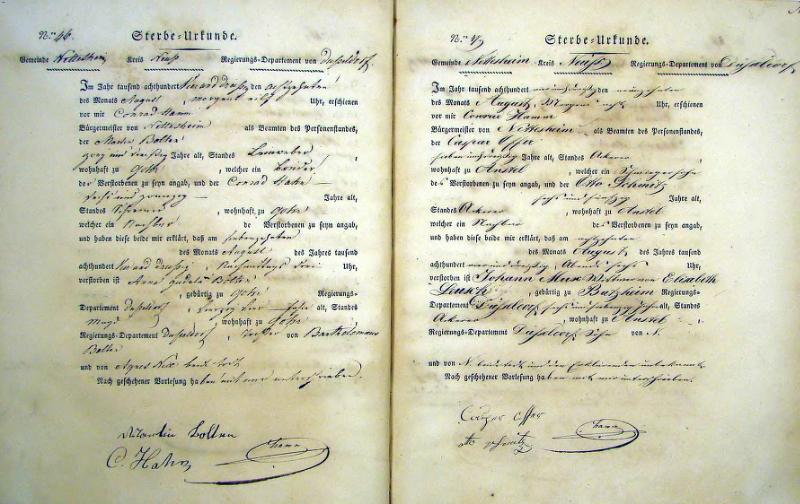 N.ro 46. Sterbe-Urkunde.
Gemeinde Nettesheim Kreis Neuß Regierungs-Departement von Düsseldorf
Im Jahr tausend achthundert den achtzehnten
des Monats August, morgens Uhr, erschienen
vor mir Conrad Hamm
Bürgermeister von Nettesheim als Beamten des Personenstandes,
der Martin Bolten
zwey und dreißig Jahre alt, Standes Leineweber
wohnhaft zu Gohr, welcher ein Bruder
der Verstorbenen zu seyn angab, und der Conrad Hahn
sechs und zwanzig Jahre alt,
Standes Schreiner, wohnhaft zu Gohr
welcher ein Nachbar de Verstorbenen zu seyn angab,
und haben diese beide mir erklärt, daß am siebenzehnten
des Monats August des Jahres tausend
achthundert Nachmittags drei Uhr,
verstorben ist Anna Bolten
, gebürtig zu Gohr Regierungs-
Departement Düsseldorf, Jahre alt, Standes
Magd, wohnhaft zu Gohr
Regierungs-Departement Düsseldorf, Tochter von Bartholomäus
Bolten
und von Agnes beide todt
Nach geschehener Vorlesung haben mit mir unterschrieben.
Martin Bolten
C. Hahn Hamm
N.ro 47 Sterbe-Urkunde.
Gemeinde Nettesheim Kreis Neuß Regierungs-Departement von Düsseldorf
Im Jahr tausend achthundert den neunzehnten
des Monats August, Morgens Uhr, erschienen
vor mir Conrad Hamm
Bürgermeister von Nettesheim als Beamten des Personenstandes,
der Caspar Esser
Jahre alt, Standes Ackerer
wohnhaft zu Anstel, welcher ein Schwiegersohn
des Verstorbenen zu seyn angab, und der Otto Schmitz
sechs und fünfzig Jahre alt,
Standes Ackerer, wohnhaft zu Anstel
welcher ein Nachbar des Verstorbenen zu seyn angab,
und haben diese beide mir erklärt, daß am achtzehnten
des Monats August des Jahres tausend
achthundert Abends sechs Uhr,
verstorben ist Johann Wittmann von Elisabeth
, gebürtig zu Regierungs-
Departement Düsseldorf, Jahre alt, Standes
Ackerer, wohnhaft zu Anstel
Regierungs-Departement Düsseldorf Sohn von N.
und von N. beide todt und den Erklärenden unbekannt.
Nach geschehener Vorlesung haben mit mir unterschrieben.
Caspar Esser
Otto Schmitz Hamm